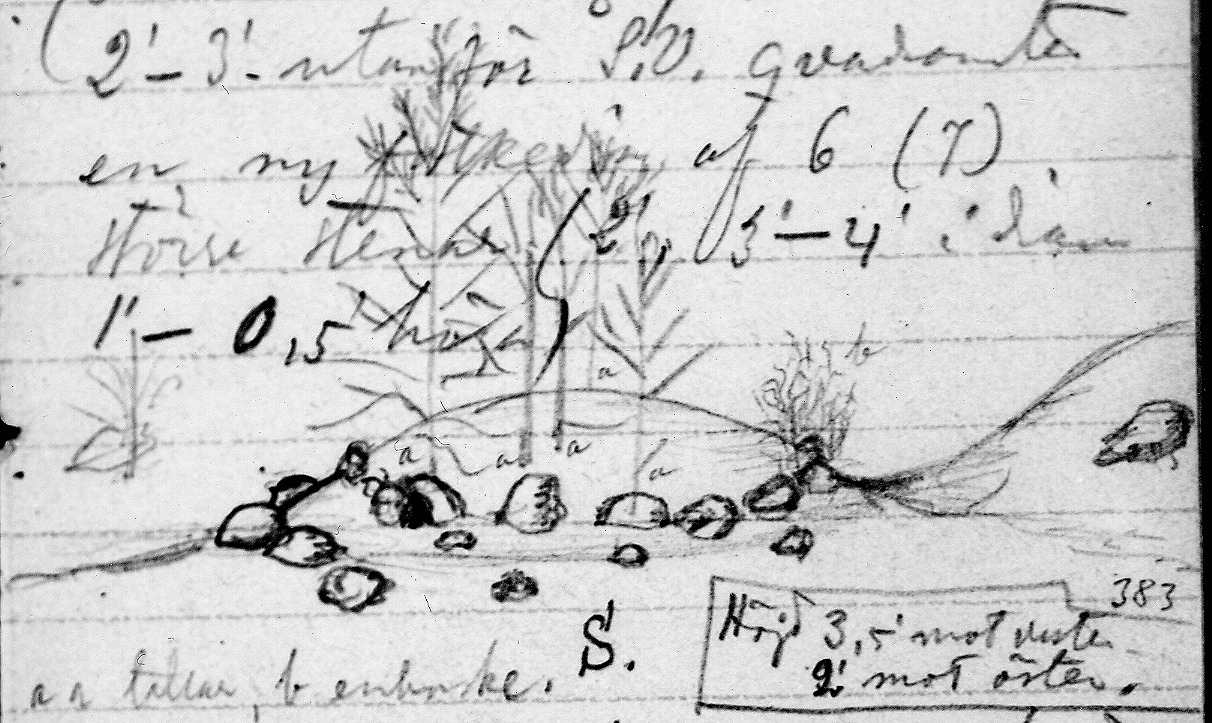 (2' – 3' utanför S.V. qvadranten
en ny af 6 (7)
större stenar (2', 3' – 4' i diam
1' – 0,5' höga)
a
b
a a a a
383
Höjd 3,5' mot vester
2' mot öster.
S.
a a tallar, b enbuske.